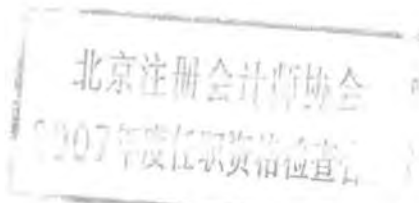 北京注册会计师协会
2007年度任职资格检查合